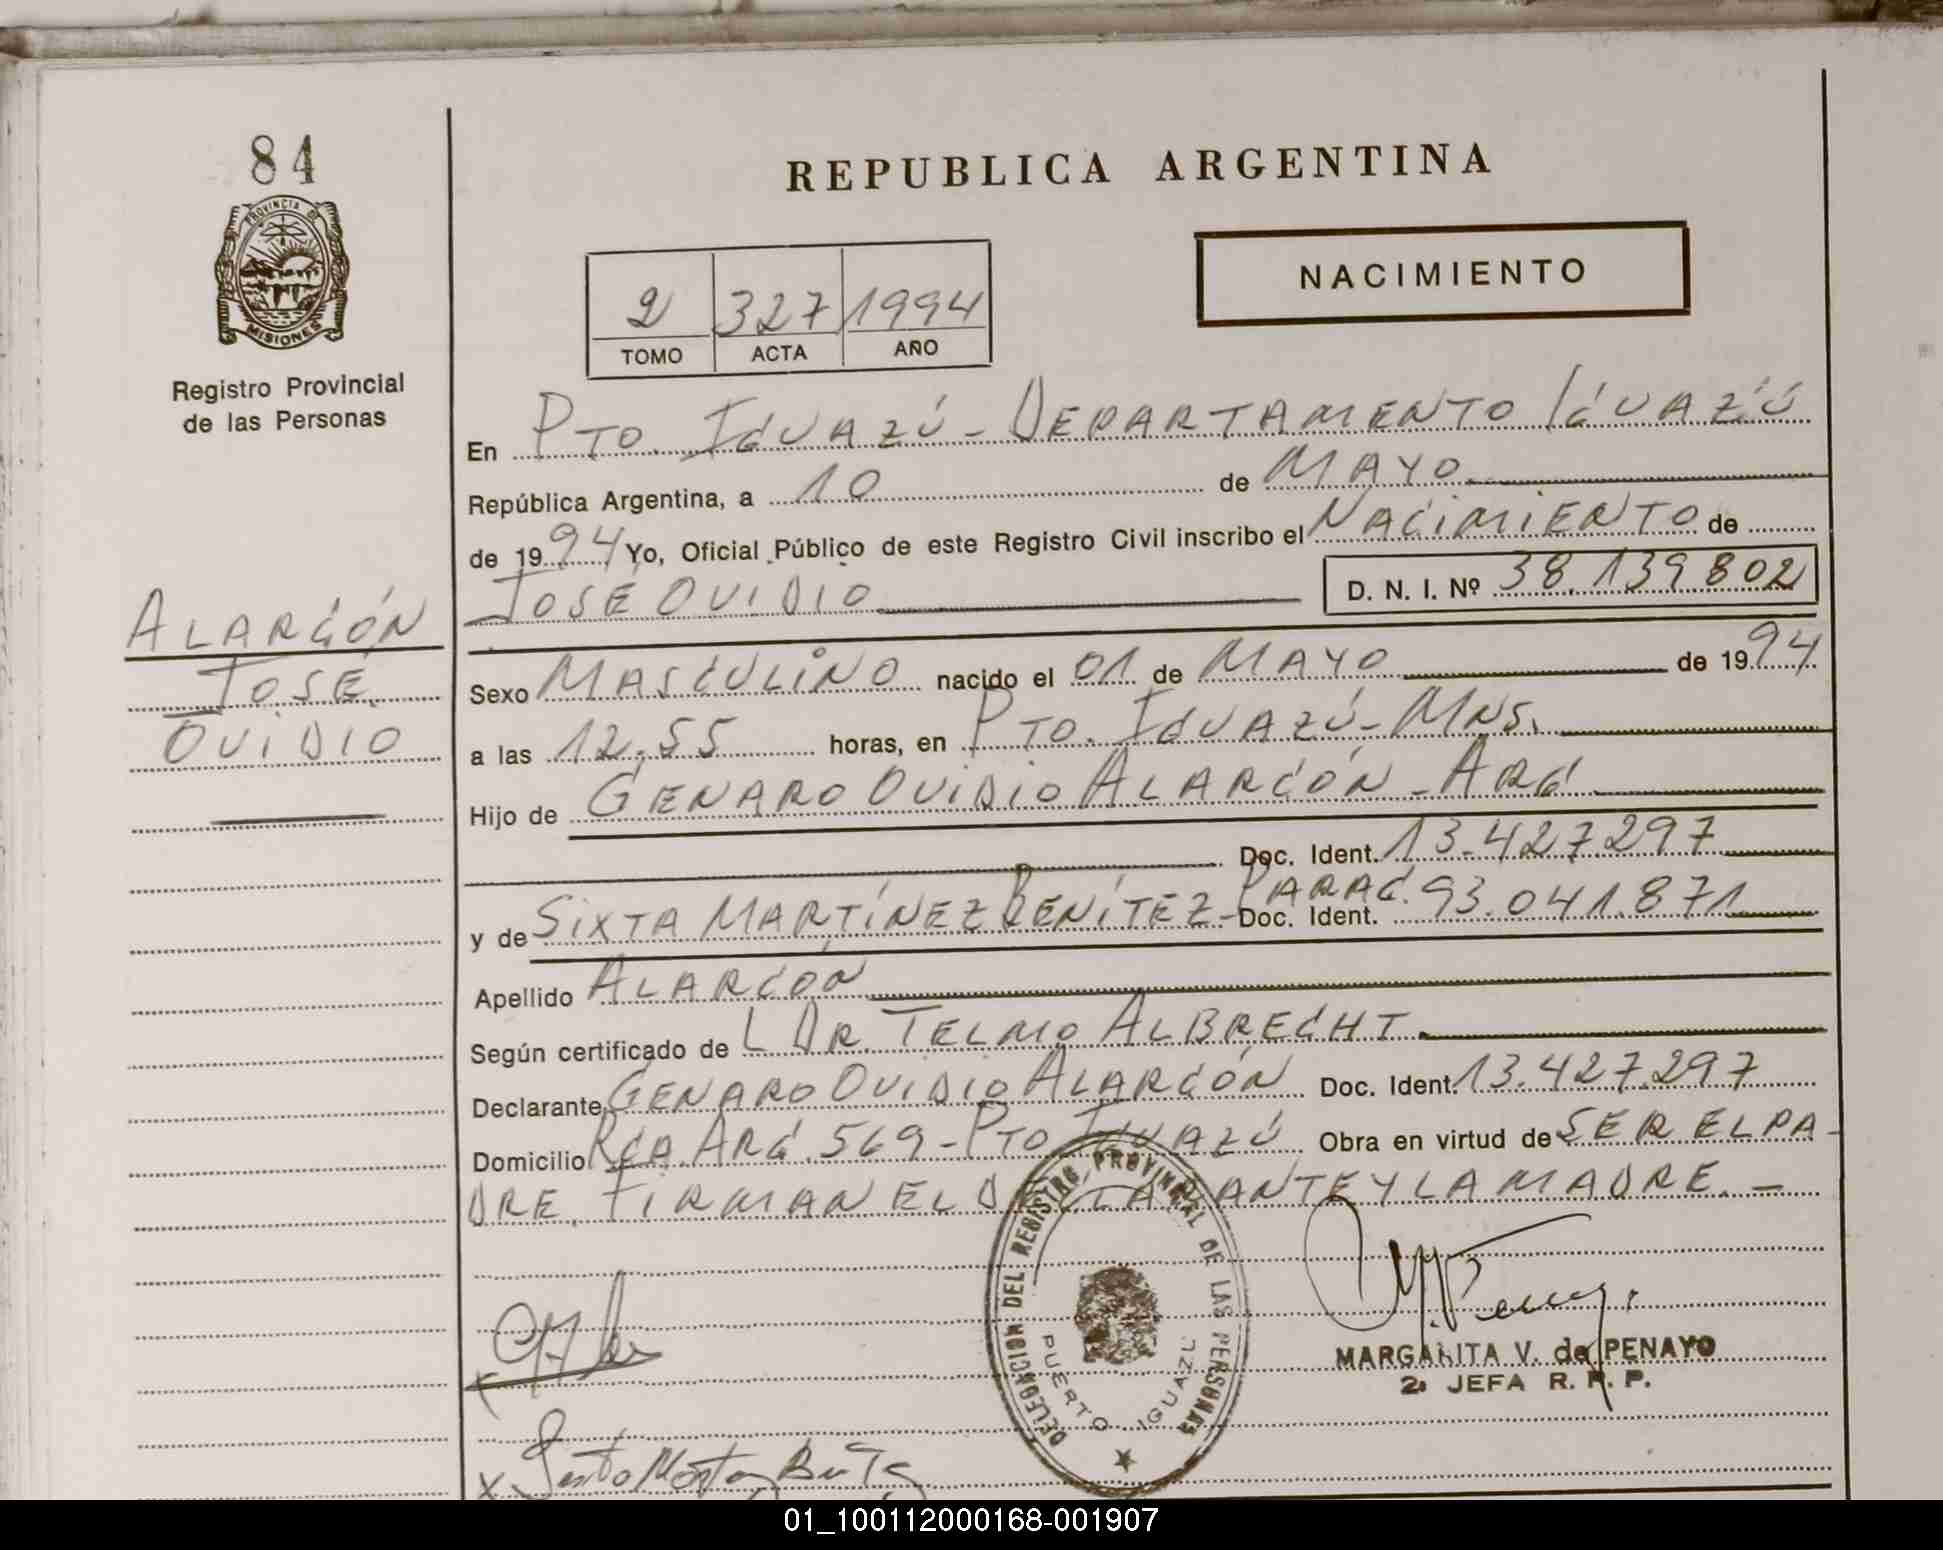 84
PROVINCIA DE
MISIONES
Registro Provincial
de las Personas
ALARCÓN
JOSÉ
OVIDIO
REPUBLICA ARGENTINA
NACIMIENTO
2 327 1994
TOMO ACTA AÑO
En PTO. IGUAZÚ - DEPARTAMENTO IGUAZÚ
República Argentina, a 10 de MAYO
de 1994 Yo, Oficial Público de este Registro Civil inscribo el NACIMIENTO de
JOSÉ OVIDIO D. N. I. Nº 38.139.802
Sexo MASCULINO nacido el 01 de MAYO de 1994
a las 12.55 horas, en PTO. IGUAZÚ - MNS.
Hijo de GENARO OVIDIO ALARCÓN - ARG.
Doc. Ident. 13.427.297
y de SIXTA MARTÍNEZ BENÍTEZ - PARAG. Doc. Ident. 93.041.871
Apellido ALARCÓN
Según certificado de L DR. TELMO ALBRECHT
Declarante GENARO OVIDIO ALARCÓN Doc. Ident. 13.427.297
Domicilio RCA. ARG. 569 - PTO IGUAZÚ Obra en virtud de SER EL PA-
DRE. FIRMAN EL DECLARANTE Y LA MADRE. -
DELEGACION DEL REGISTRO PROVINCIAL DE LAS PERSONAS
PUERTO IGUAZU
MARGARITA V. de PENAYO
2ª JEFA R. P. P.
01_100112000168-001907